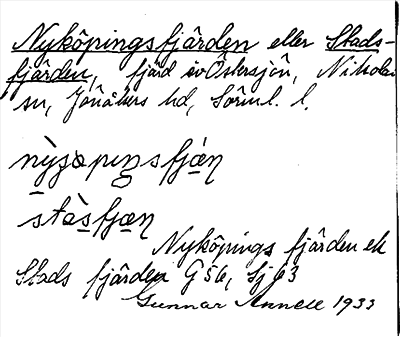 Nyköpingsfjärden eller Stads-
fjärden, fjärd av Östersjön, Nikolai
sn, Jönåkers hd, Södml. l.
stàsfjæņ
Nyköpings fjärden el.
Stads fjärden G 56, Sj 63
Gunnar Annell 1933